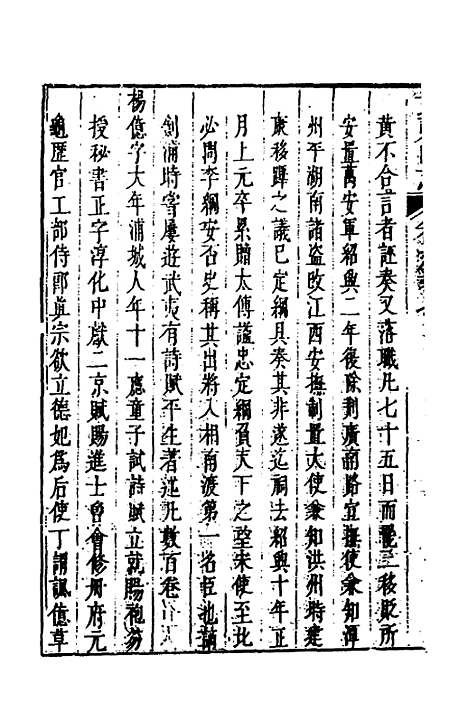 黃不合言者誣奏又落職凡七十五日而罷三移貶所
安置萬安軍紹興二年後除荆廣諸路宣撫使兼知潭
州平湖南諸盜改江西安撫制置大使兼知洪州時建
康移蹕之議已定綱具奏其非遂迄祠去紹興十年正
月上元卒累贈太傅謚忠定綱負天下之望宋使至北
必問李綱安否史稱其出將入相南渡第一名臣也謫
劍浦時嘗屢遊武夷有詩賦平生著述凡數百卷
楊億字大年浦城人年十一應童子試詩賦立就賜袍笏
授秘書正字淳化中獻二京賦賜進士曾會修册府元
龜歷官工部侍郎眞宗欲立德妃爲后使丁謂諷億草